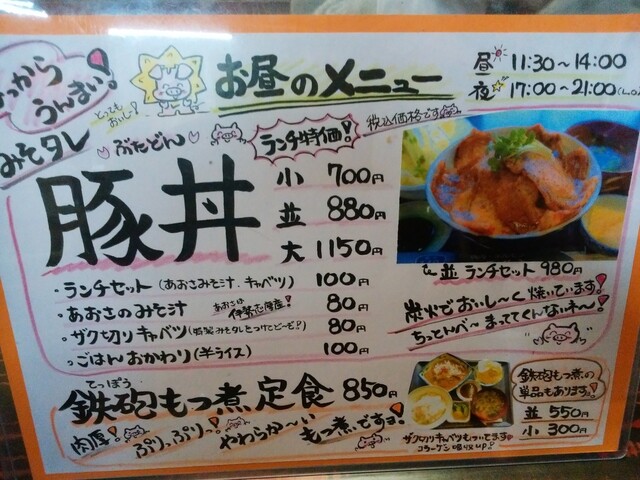 っからうんまい!
お昼のメニュー
昼 11:30~14:00
夜 17:00~21:00(L.O
とってもおいしー!
みそタレ
ぶたどん
ランチ特価!
税込価格です
豚丼
小 700円
並 880円
大 1150円
・ランチセット(あおさみそ汁、キャベツ) 100円
・あおさのみそ汁 あおさは伊勢志摩産! 80円
・ザク切りキャベツ(特製みそタレをつけてどーぞ!) 80円
・ごはんおかわり(半ライス) 100円
並 ランチセット 980円
炭火でおいし~く焼いています!
ちっとんべ~まっててくんないネ~!
てっぽう
鉄砲もつ煮定食 850円
肉厚!ぷりっぷりっ~!やわらか~いもつ煮ですョ!
鉄砲もつ煮の
単品もあります!
並 550円
小 300円
ザク切りキャベツもついてます
コラーゲン吸収UP!